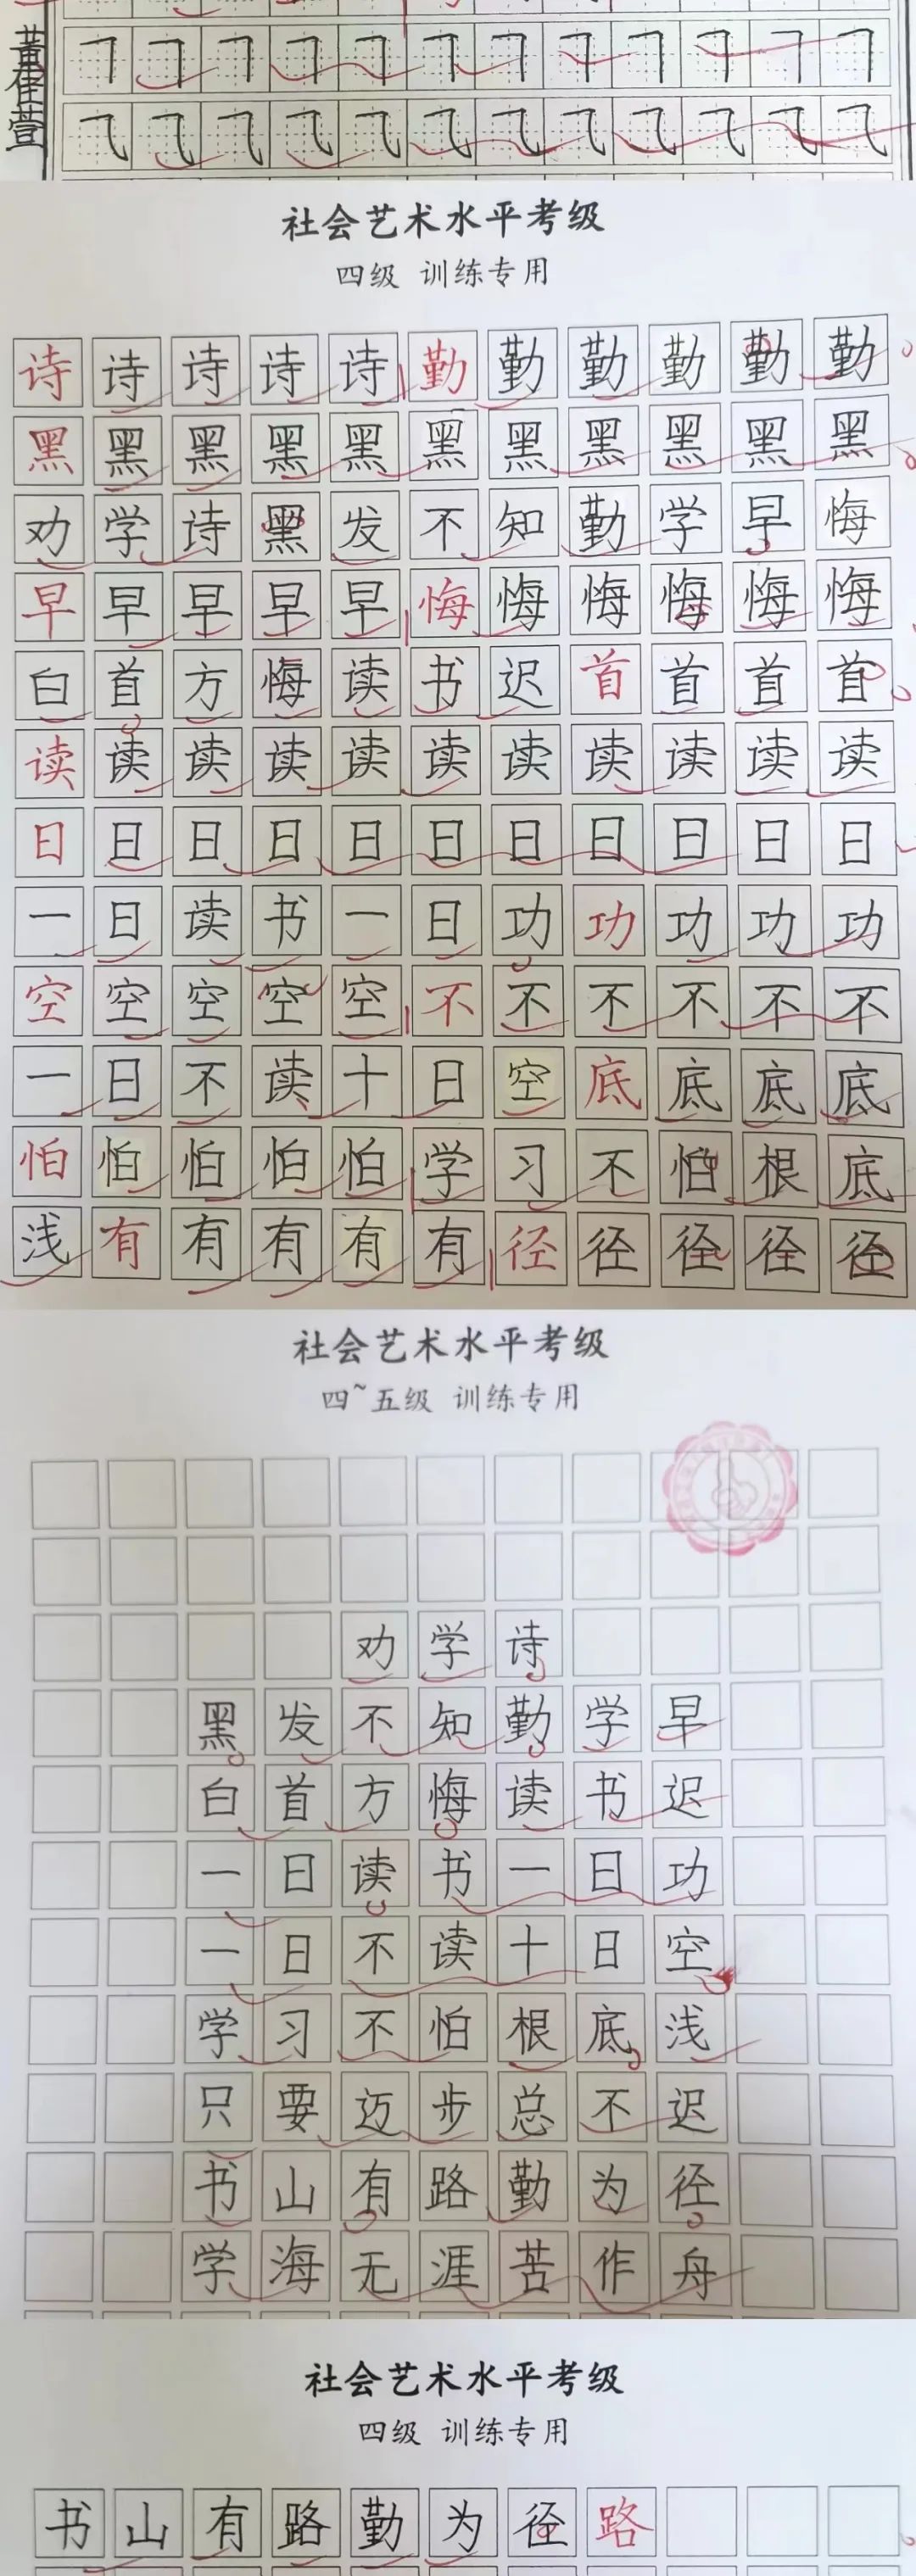 董佳萱
社会艺术水平考级
四级 训练专用
诗诗诗诗诗勤勤勤勤勤勤
黑黑黑黑黑黑黑黑黑黑黑
劝学诗黑发不知勤学早悔
早早早早早悔悔悔悔悔悔
白首方悔读书迟首首首首
读读读读读读读读读读读
日日日日日日日日日日日
一日读书一日功功功功功
空空空空空不不不不不不
一日不读十日空底底底底
怕怕怕怕怕学习不怕根底
浅有有有有有径径径径径
社会艺术水平考级
四~五级 训练专用
劝学诗
黑发不知勤学早
白首方悔读书迟
一日读书一日功
一日不读十日空
学习不怕根底浅
只要迈步总不迟
书山有路勤为径
学海无涯苦作舟
社会艺术水平考级
四级 训练专用
书山有路勤为径路